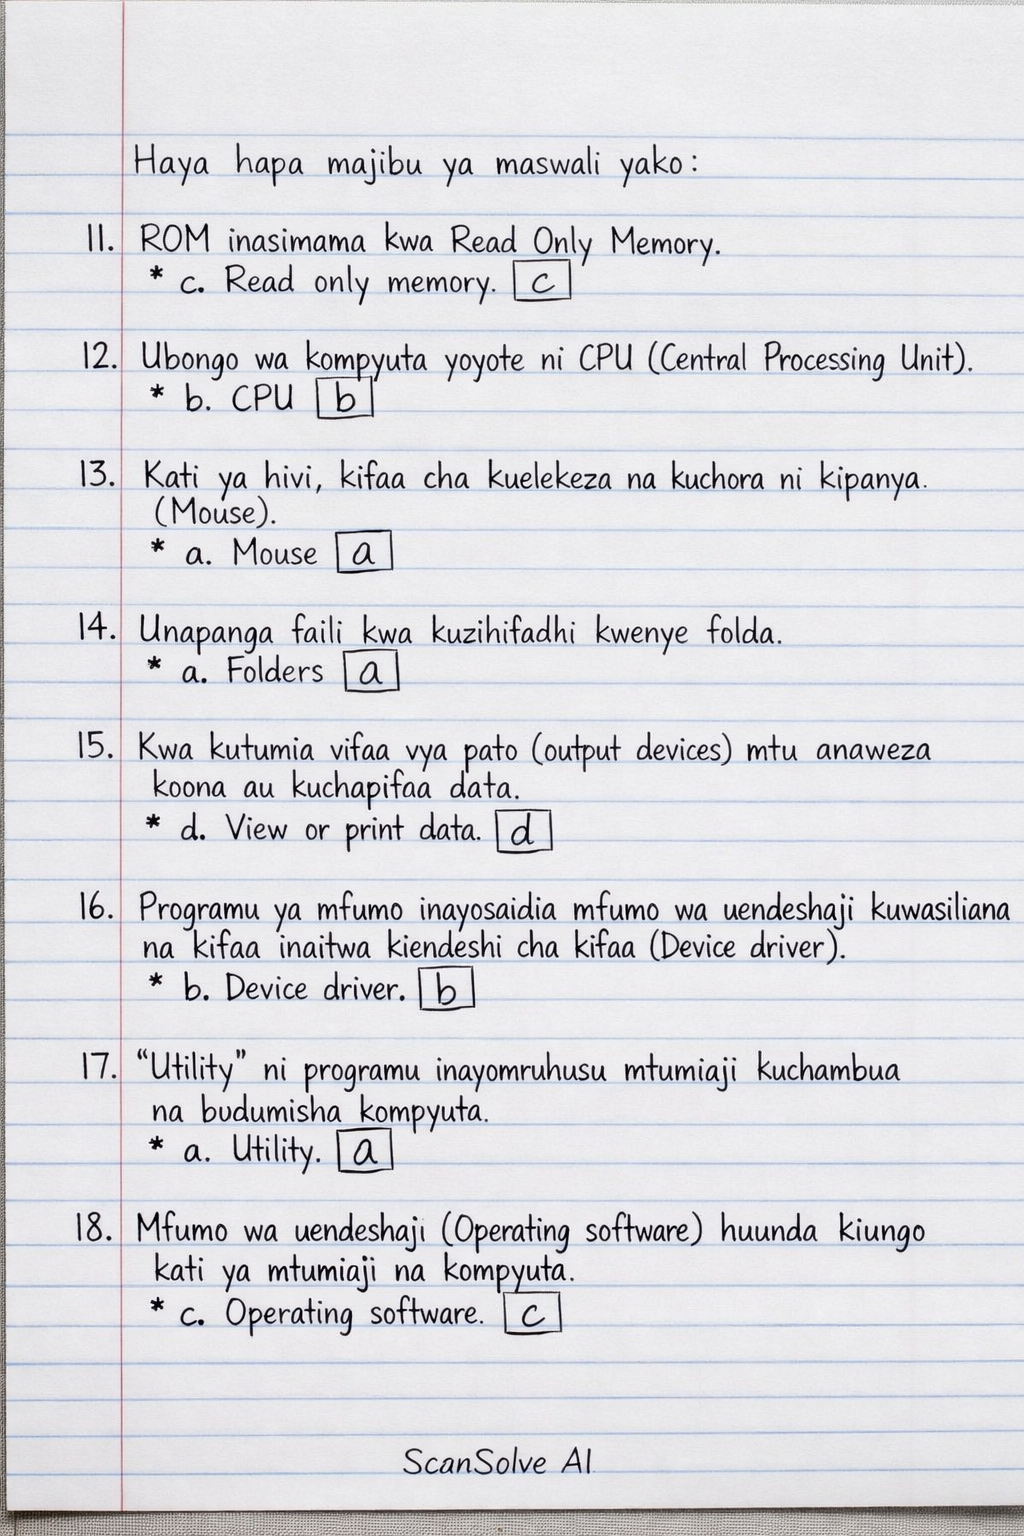 Haya hapa majibu ya maswali yako:
11. ROM inasimama kwa Read Only Memory.
* c. Read only memory. c
12. Ubongo wa kompyuta yoyote ni CPU (Central Processing Unit).
* b. CPU b
13. Kati ya hivi, kifaa cha kuelekeza na kuchora ni kipanya.
(Mouse).
* a. Mouse a
14. Unapanga faili kwa kuzihifadhi kwenye folda.
* a. Folders a
15. Kwa kutumia vifaa vya pato (output devices) mtu anaweza
koona au kuchapifaa data.
* d. View or print data. d
16. Programu ya mfumo inayosaidia mfumo wa uendeshaji kuwasiliana
na kifaa inaitwa kiendeshi cha kifaa (Device driver).
* b. Device driver. b
17. “Utility” ni programu inayomruhusu mtumiaji kuchambua
na budumisha kompyuta.
* a. Utility. a
18. Mfumo wa uendeshaji (Operating software) huunda kiungo
kati ya mtumiaji na kompyuta.
* c. Operating software. c
ScanSolve AI